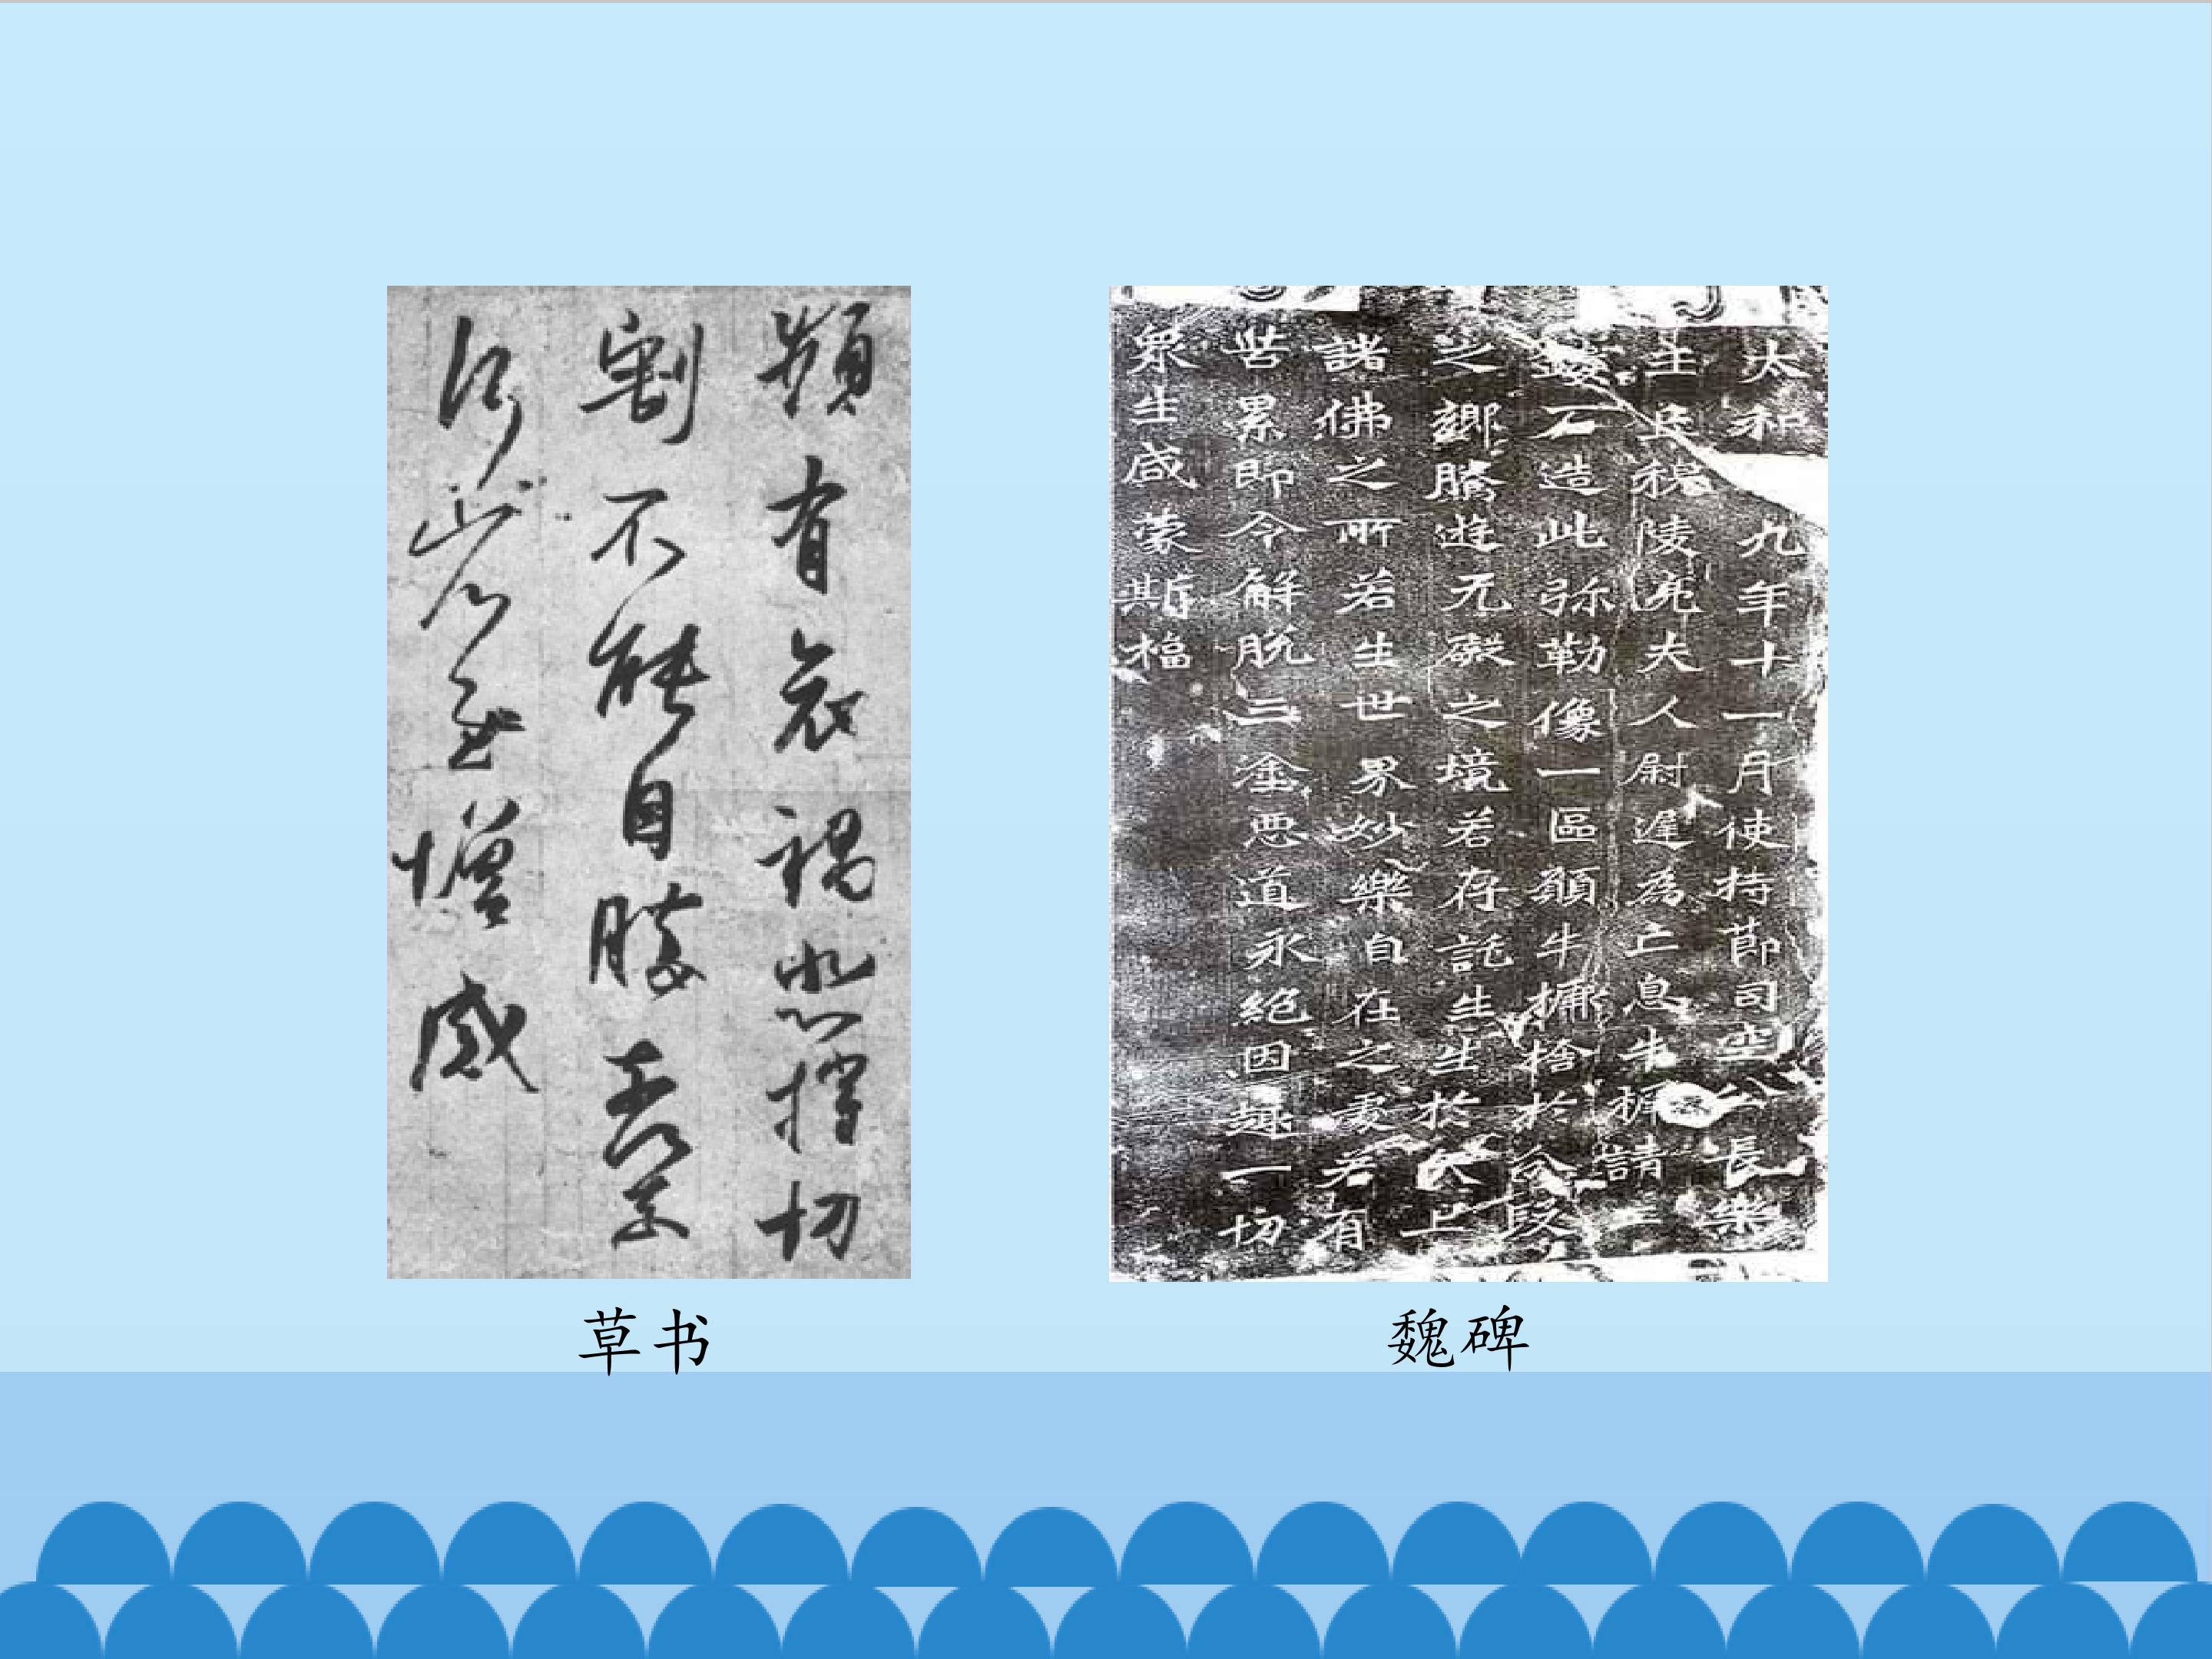 頻有哀禍悲摧切
割不能自勝奈何奈
何省慰增感
太和九年十一月使持節司空公長樂
王丘穆陵亮夫人尉遲為亡息牛橛請工
鏤石造此弥勒像一區願牛橛捨於分段
之鄉騰遊无礙之境若存託生生於天上
諸佛之所若生世界妙樂自在之處若有
苦累即令解脫三塗惡道永絕因趣一切
眾生咸蒙斯福
草书
魏碑